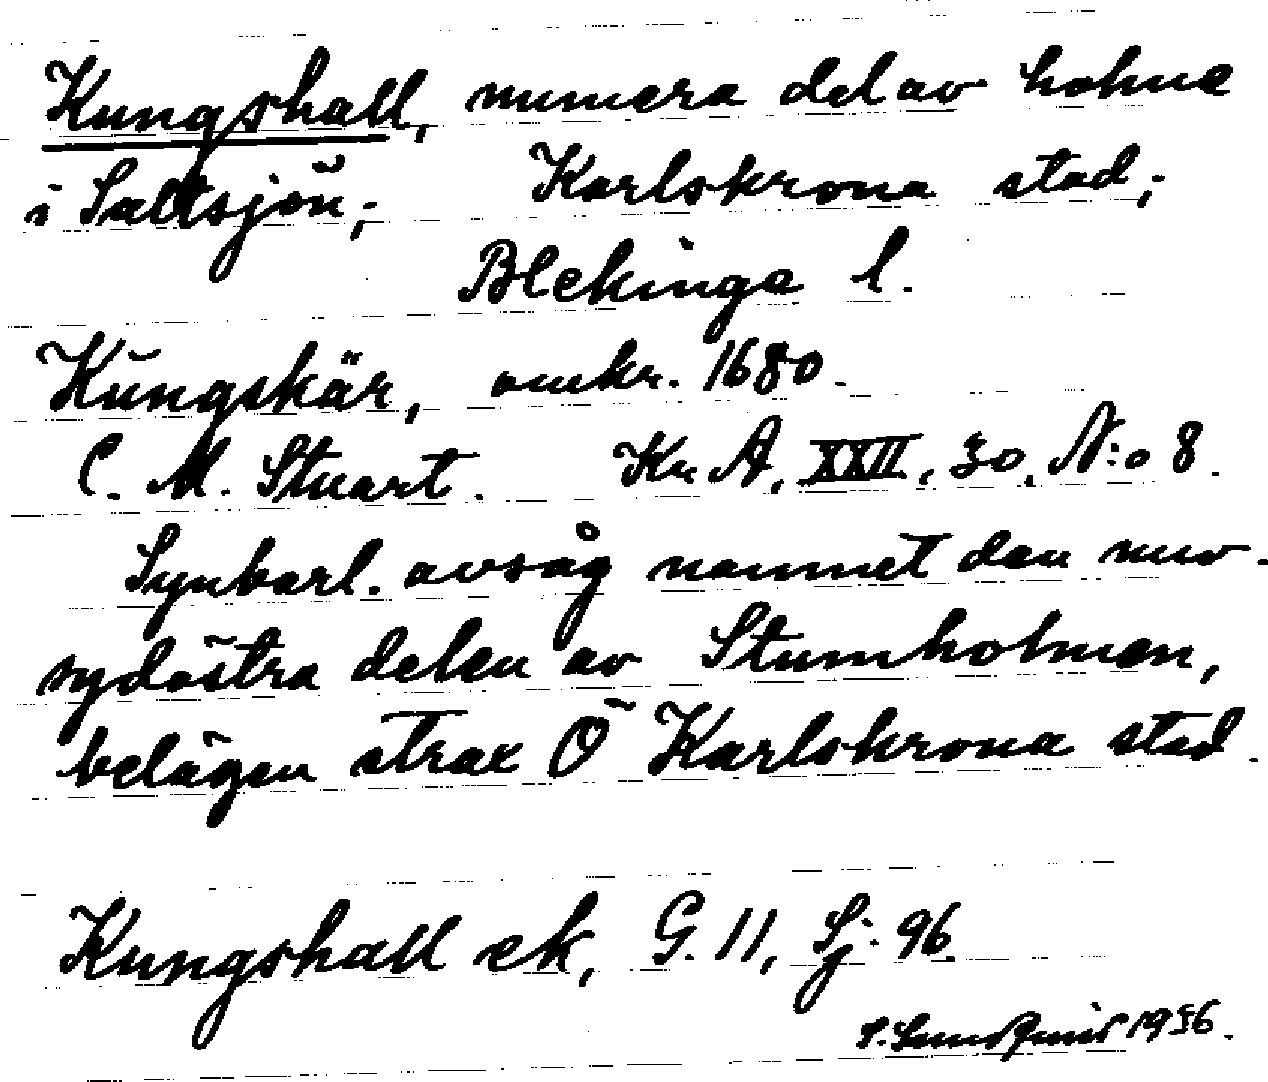 Kungshall, numera del av holme
i Saltsjön; Karlskrona stad;
Blekinge l.
Kungskär, omkr. 1680.
C. M. Stuart. Kr A, XXII, 30, N:o 8.
Synbarl. avsåg namnet den nuv.
sydöstra delen av Stumholmen,
belägen strax Ö Karlskrona stad.
Kungshall ek, G. 11, Sj: 96.
S. 1956.